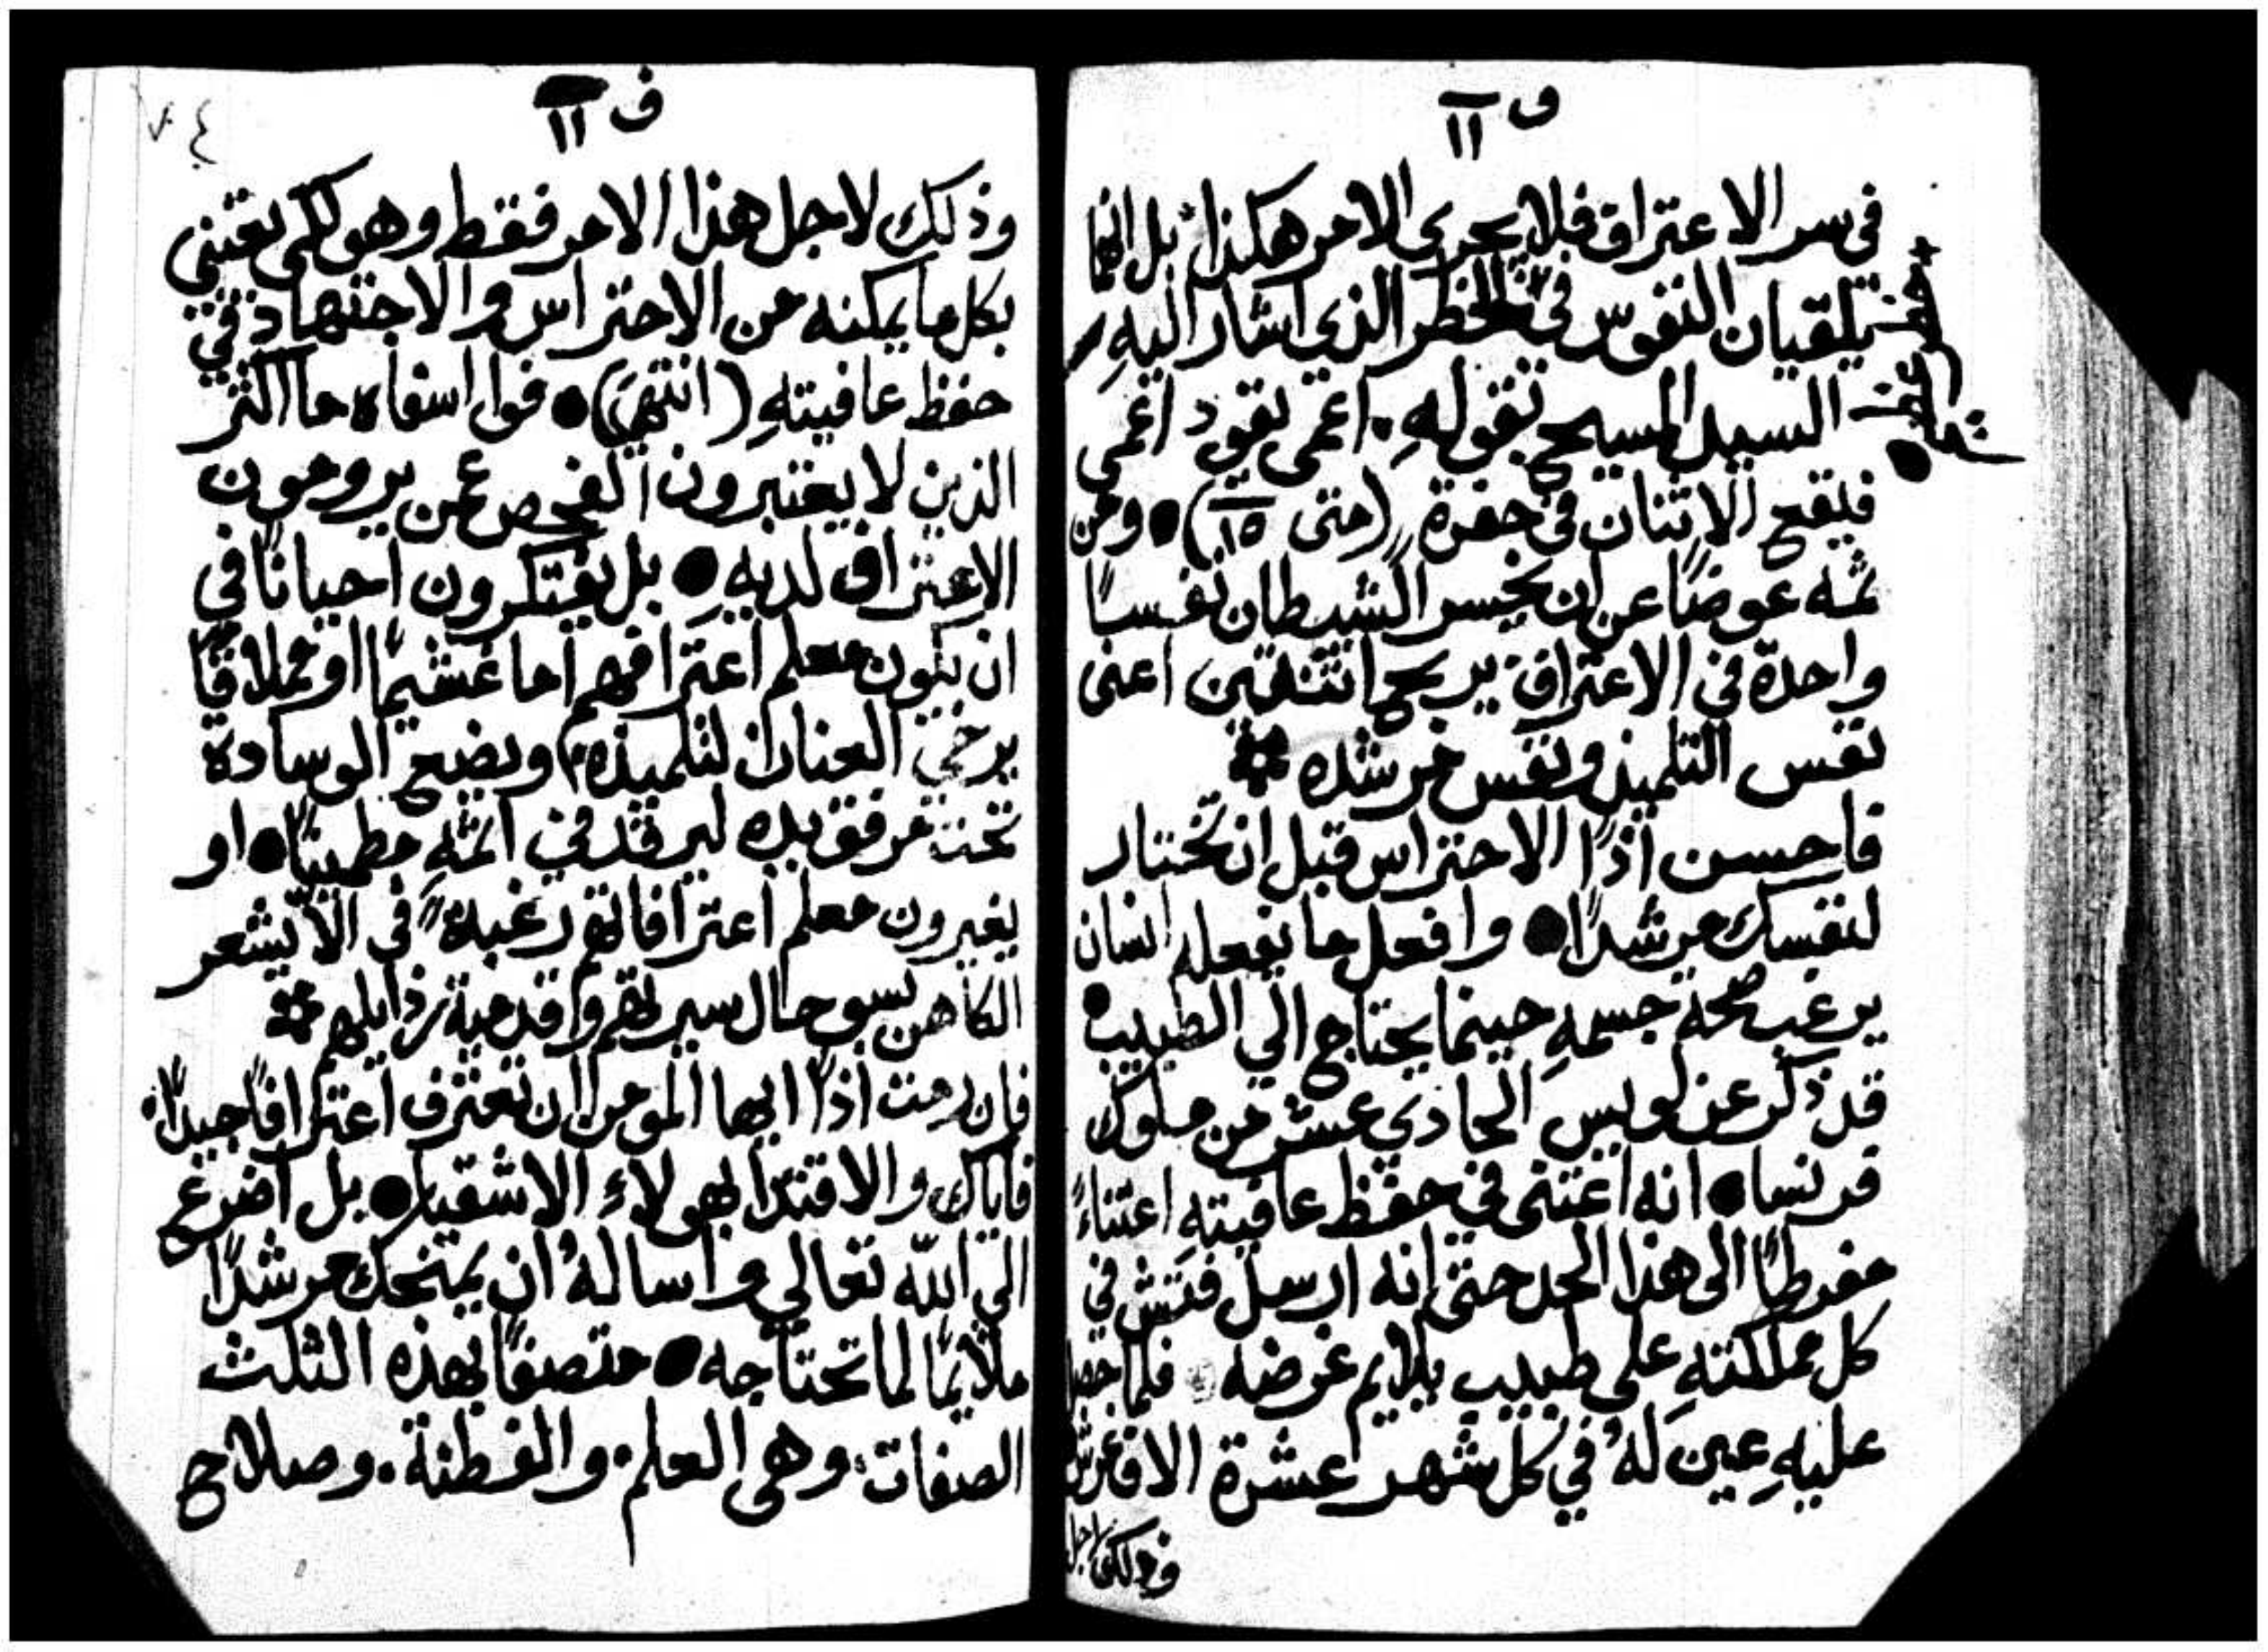 ف ١١
في سر الاعتراف فلا يجري الامر هكذا، بل انهما
يلقيان النفوس في الخطر الذي اشار اليهِ
السيد المسيح بقولهِ. اعمى يقود اعمى
فيقع الاثنان في حفرة (متى ١٥)● ومن
ثمه عوضًا عن ان يخسر الشيطان نفسًا
واحدة في الاعتراف يربح اثنتين اعنى
نفس التلميذ ونفس مرشده
فاحسن اذًا الاحتراس قبل ان تختار
لنفسك مرشدًا● وافعل ما يفعله انسان
يرغب صحة جسمهِ حينما يحتاج الي الطبيب●
قد ذكر عن لويس الحادي عشر من ملوك
فرنسا● انه اعتنى في حفظ عافيتهِ اعتناءً
مفرطًا الى هذا الحد حتى انه ارسل فتش في
كل مملكتهِ على طبيب يلايم غرضه فلما حصل
عليهِ عين لهُ في كل شهر عشرة الاف غرش
وذلك لاجل
ف ١١
٧٤
وذلك لاجل هذا الامر فقط وهو لكى يعتني
بكل ما يمكنه من الاحتراس والاجتهاد في
حفظ عافيتهِ (انتهى)● فوا اسفاه ما اكثر
الذين لا يعتبرون الفحص عمن يرومون
الاعتراف لديهِ● بل يفتكرون احيانًا في
ان يكون معلم اعترافهم اما غشيمًا او مملاقًا
يرخي العنان لتلميذه، ويضع الوسادة
تحت مرفق يده ليرقد في اثمهِ مطمينًا● او
يغيرون معلم اعترافاتهم رغبةً في الّا يشعر
الكاهن بسو حال سيرتهم واقدمية رذايلهم
فان رمت اذًا ايها المومن ان تعترف اعترافًا جيدًا،
فاياك والاقتدا بهولاء الاشقيا● بل اضرع
الي الله تعالي واسالهُ ان يمنحك مرشدًا
ملايمًا لما تحتاجه● متصفًا بهذه الثلث
الصفات، وهي العلم. والفطنة. وصلاح